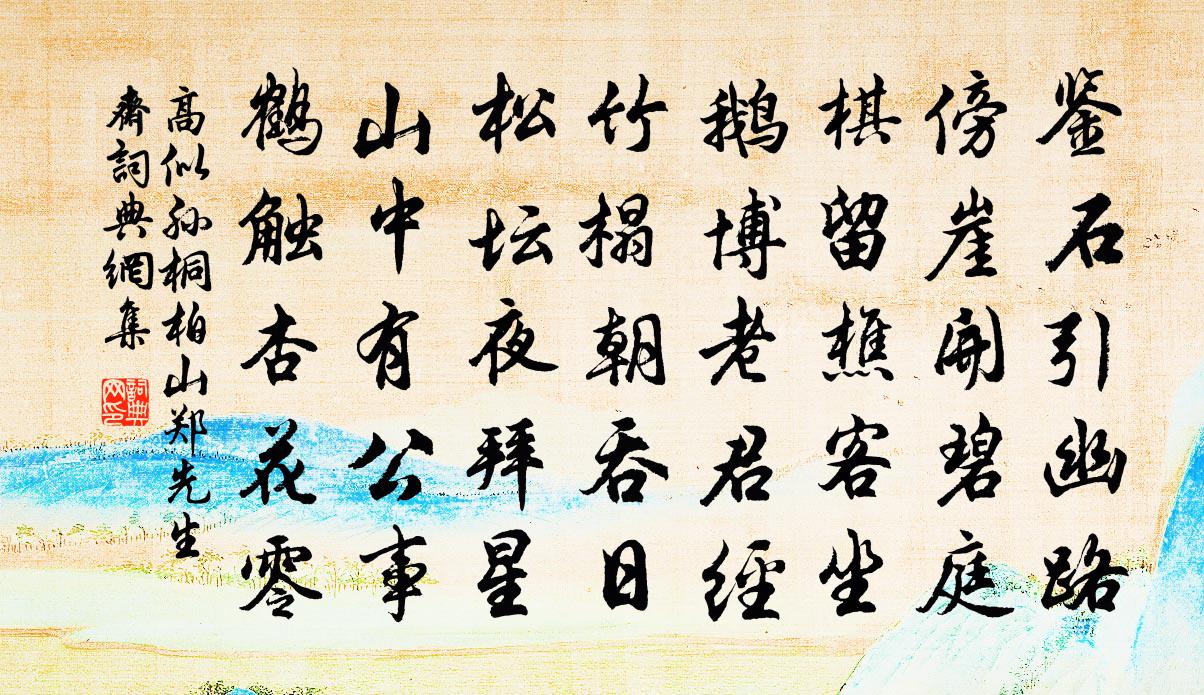 鉴石引幽路
傍崖开碧庭
棋留樵客坐
鹅博老君经
竹榻朝吞日
松坛夜拜星
山中有公事
鹤触杏花零
高似孙桐柏山郑先生
斋詞典網集
詞典网印